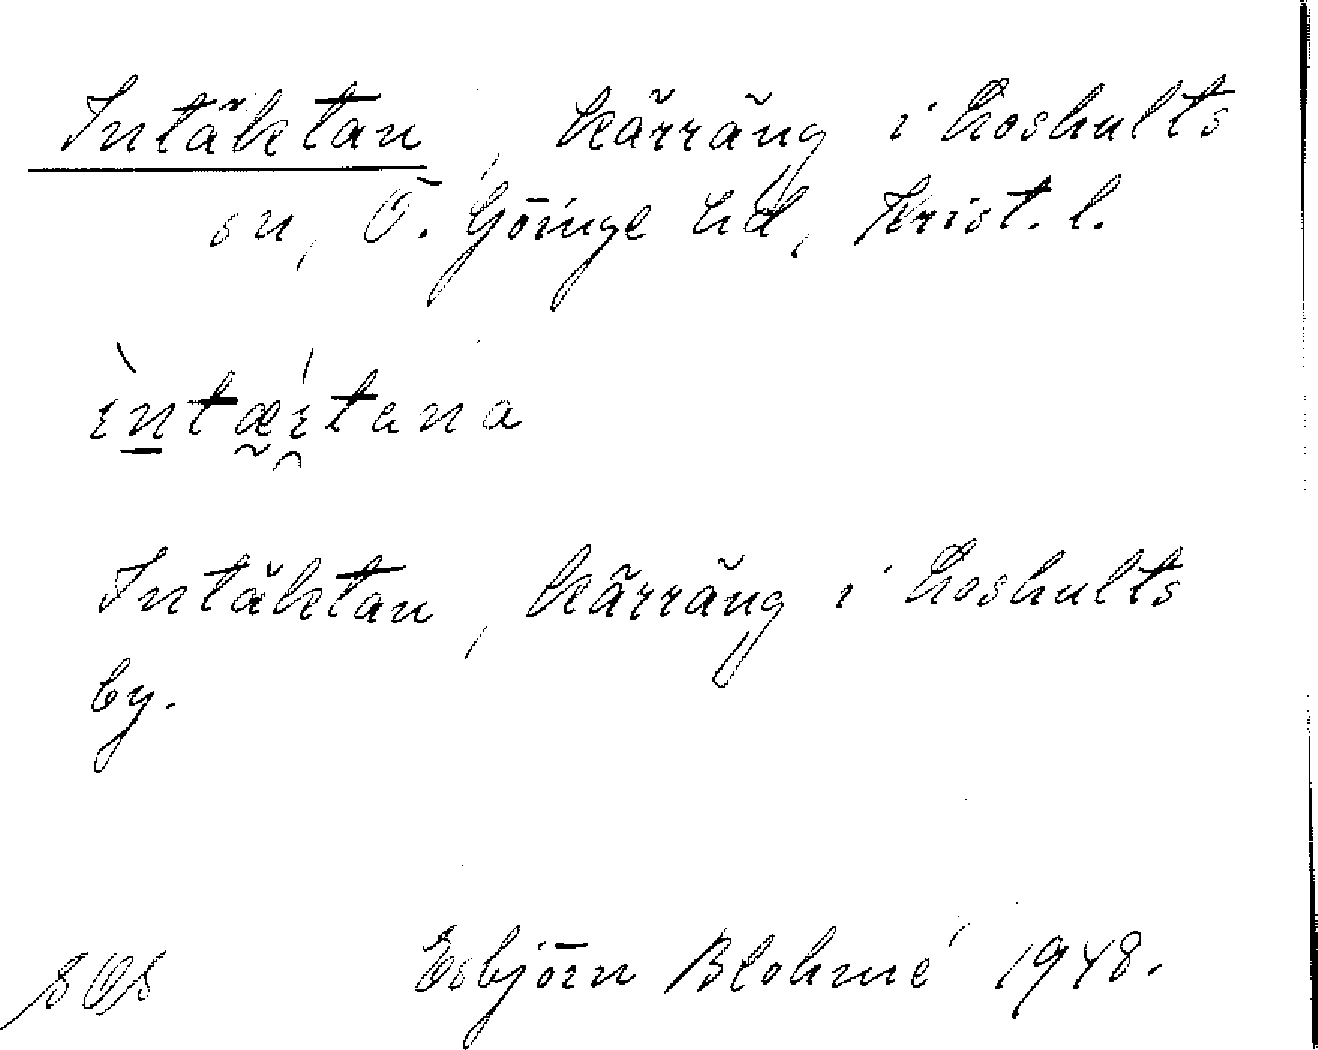 Intäktan, kärräng i Loshults
sn, Ö. Göinge hd, Krist. l.
ìntæítana
Intäktan, kärräng i Loshults
by.
Esbjörn Blohmé 1948.